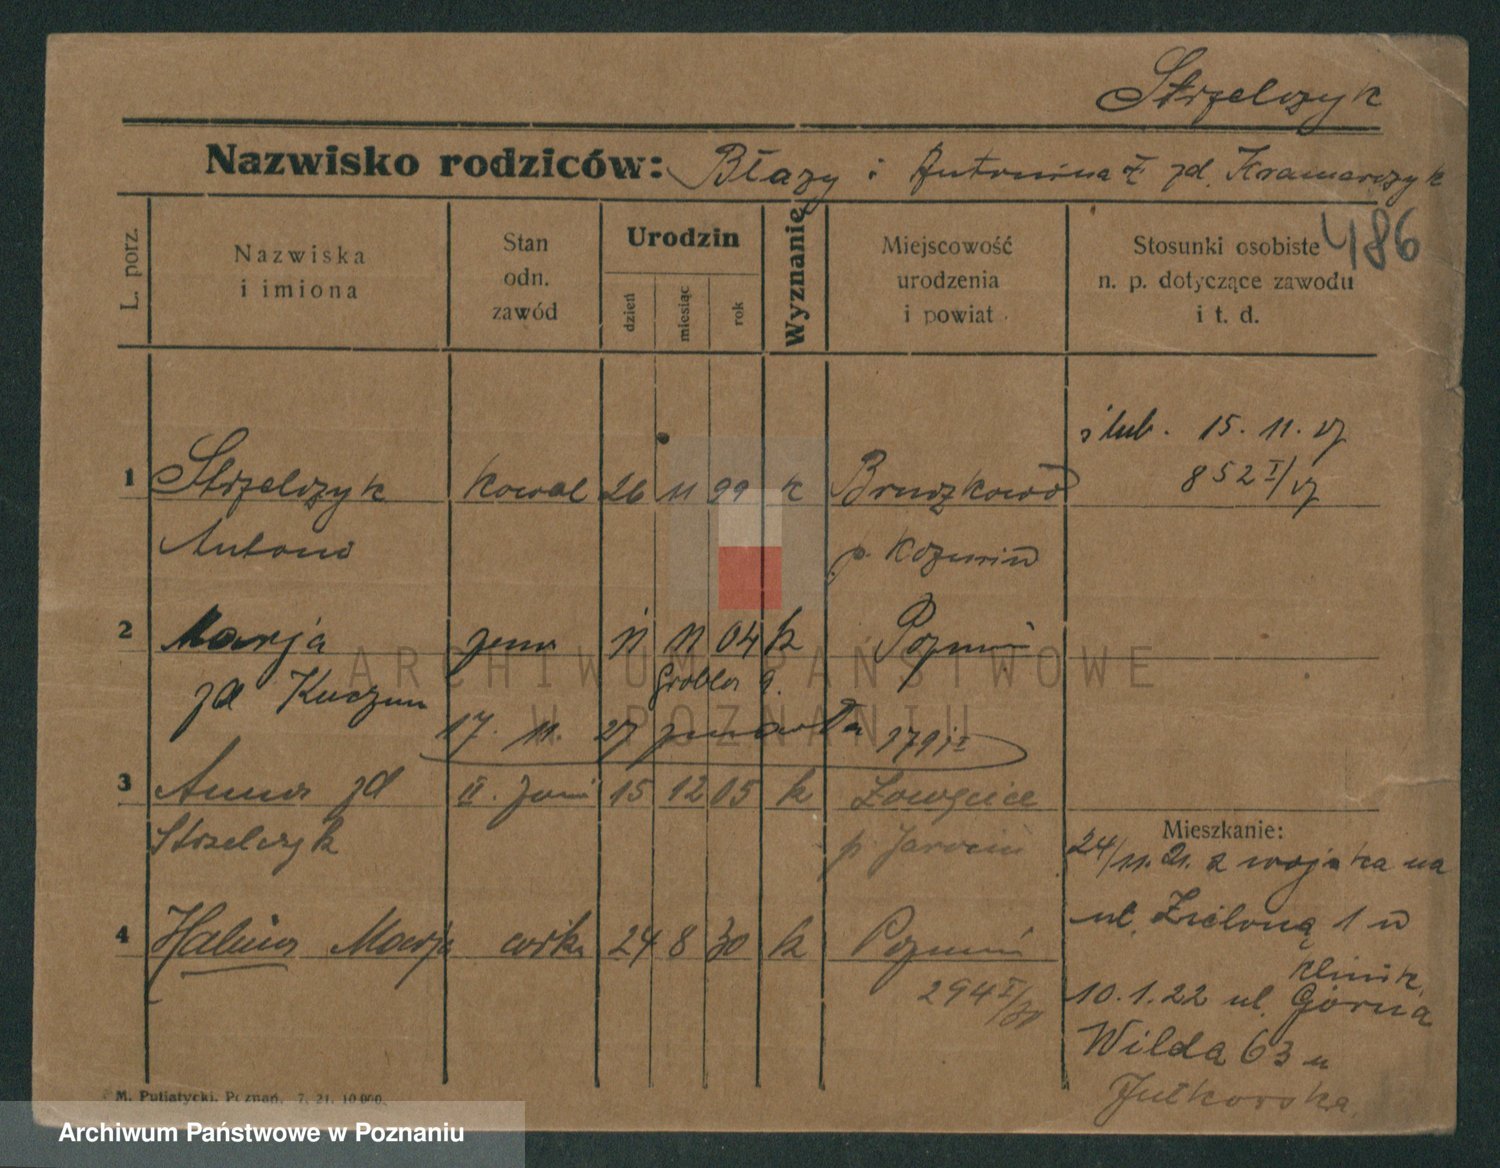 Strzelczyk
Nazwisko rodziców: Błazy i Antonina zd. Kramarczyk
486
L. porz.
Nazwiska
i imiona
Stan
odn.
zawód
Urodzin
dzień
miesiąc
rok
Wyznanie
Miejscowość
urodzenia
i powiat
Stosunki osobiste
n. p. dotyczące zawodu
i t. d.
ślub. 15. 11. 27
852 I/27
1 Strzelczyk kowal 26 11 99 k Bruczkowo
Antoni p. Kozmin
2 Marja żona 11 11 04 k Poznań
zd Kuczma Grobla 9.
17. 11. 27 zmarła 1791
3 Anna zd II. żona 15 12 05 k
Strzelczyk p. Jarocin
Mieszkanie:
24/11. 21. z wojska na
ul. Zieloną 1 u
4 Halina Marja córka 24 8 30 k Poznań
294 I/30
klinik.
10.1.22 ul. Górna
Wilda 63 u
Jutkowska
M. Putiatycki, Poznań. 7. 21. 10 000.
ARCHIWUM PAŃSTWOWE
W POZNANIU
Archiwum Państwowe w Poznaniu